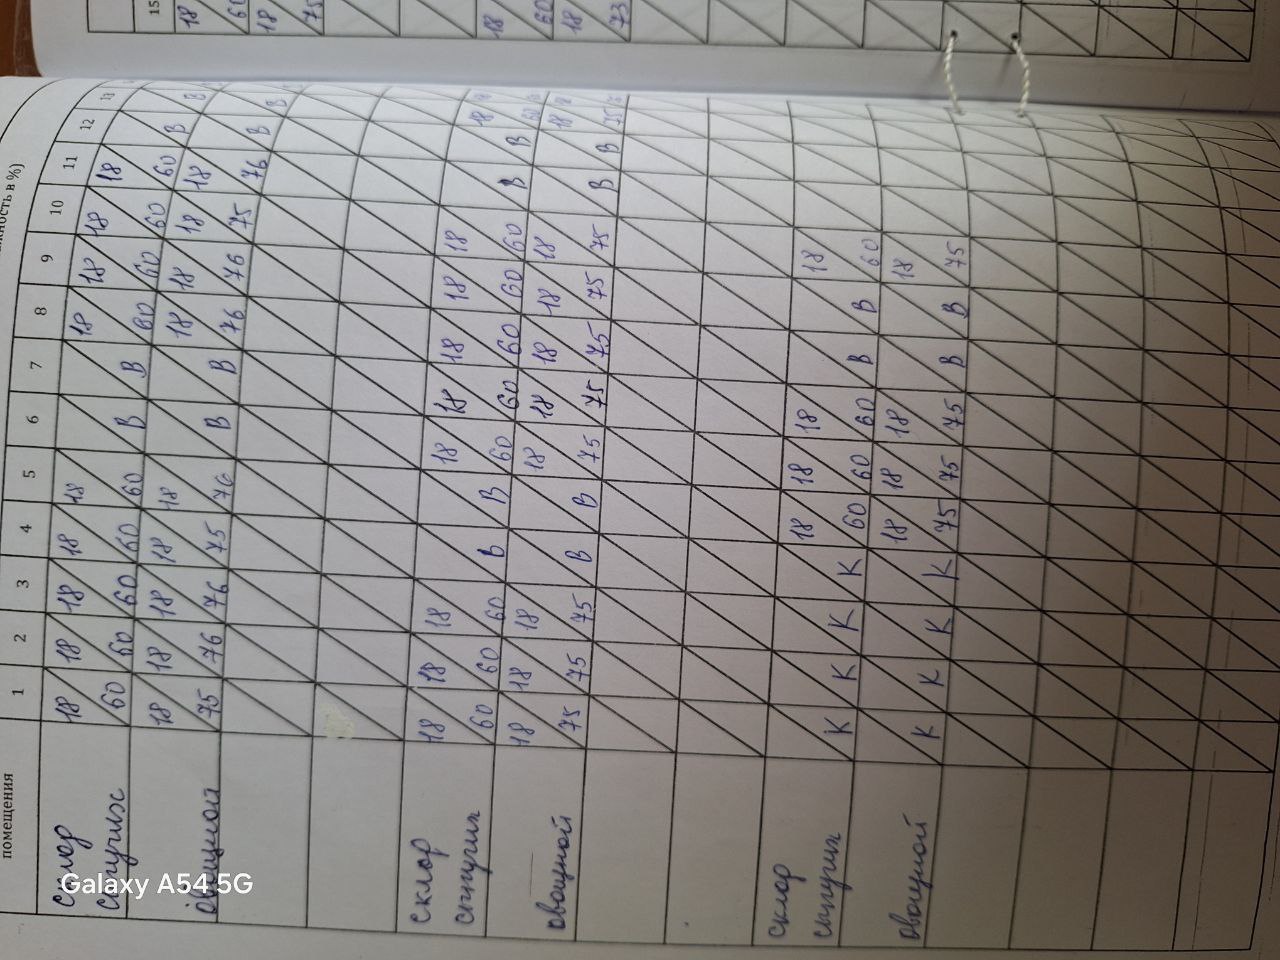 помещения
жность в %)
1 2 3 4 5 6 7 8 9 10 11 12 13
склад сыпучих
18 18 18 18 18 18 18 18 18
60 60 60 60 60 В В 60 60 60 60 В В
овощной
18 18 18 18 18 18 18 18 18
75 76 76 75 76 В В 76 76 75 76 В В
склад сыпучих
18 18 18 18 18 18 18 18 18
60 60 60 В В 60 60 60 60 60 В В 60
овощной
18 18 18 18 18 18 18 18 18
75 75 75 В В 75 75 75 75 75 В В 75
склад сыпучих
18 18 18 18
К К К К 60 60 60 В В 60
овощной
18 18 18 18
К К К К 75 75 75 В В 75
15
18
60
18
75
18
60
18
73
Galaxy A54 5G